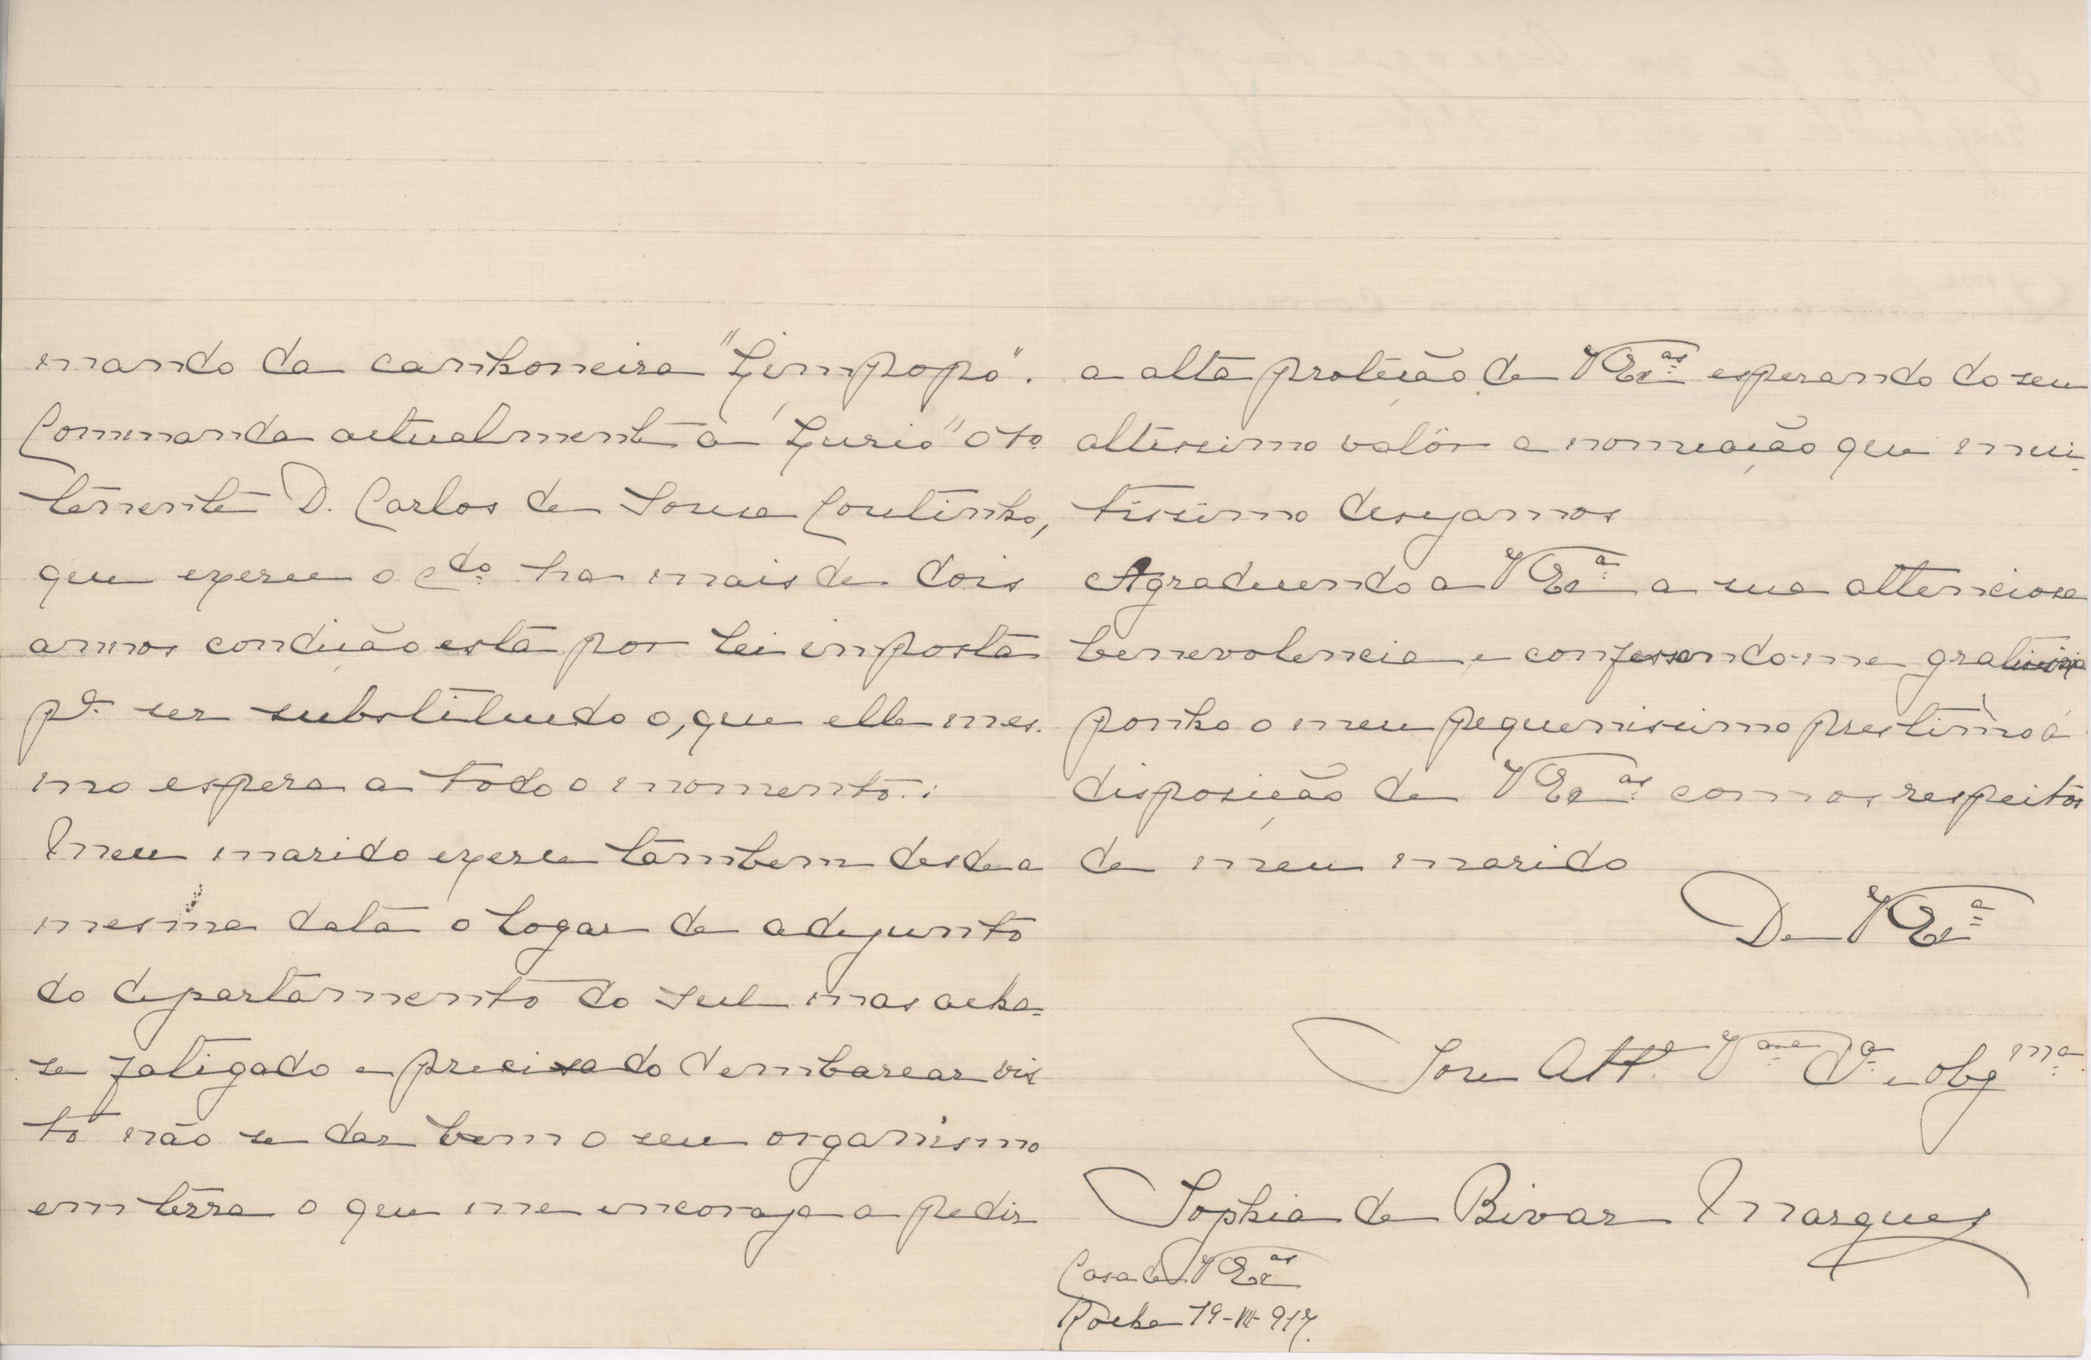 mando da canhoneira "Limpopo".
Commanda actualmente a "Lurio" o 1º
tenente D. Carlos de Sousa Coutinho,
que exerce o cdo. ha mais de dois
annos condição esta por lei imposta
pª ser substituido o, que elle mes-
mo espera a todo o momento.
Meu marido exerce tambem desde a
mesma data o logar de adejunto
do departamento do sul mas acha-
se fatigado e precisado d'embarcar vis
to não se dar bem o seu organismo
em terra o que me encoraja a pedir
a alta proteção de V Exas. esperando do seu
altissimo valôr a nomeação que mui-
tissimo desejamos
Agradecendo a V Exa. a sua attenciosa
benevolencia e confessando-me gratissima
ponho o meu pequenissimo prestimo á
disposição de V Exas. com os respeitos
de meu marido
De V Exa
Sou Atte. Vdra. Cª e obgma.
Sophia de Bivar Marques
Casa de V Exas
Rocha 19-VII-917.